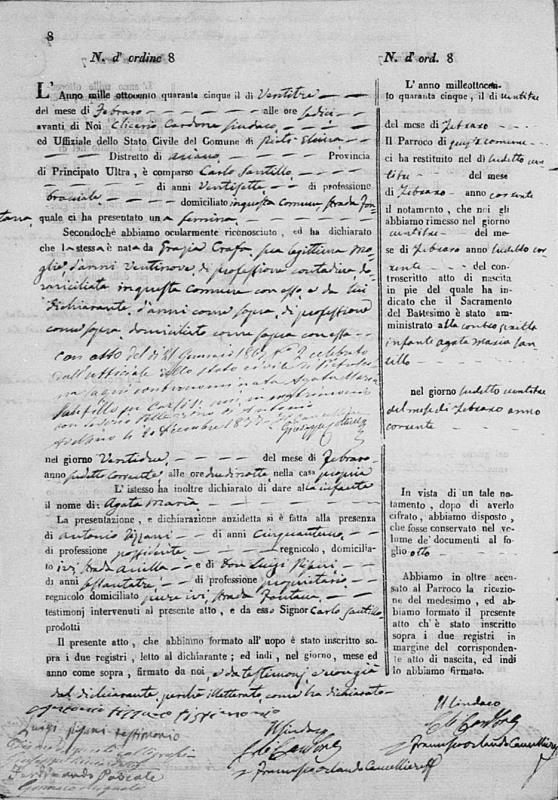 8
N. d' ordine 8
L' Anno mille ottocento quaranta cinque il dì Ventitre
del mese di Febraro alle ore sedici
avanti di Noi Eliseo Cardone Sindaco
ed Uffiziale dello Stato Civile del Comune di
Distretto di Ariano Provincia
di Principato Ultra, è comparso Carlo Santillo
di anni Ventisette di professione
bracciale domiciliato in questa Comune, strada Fon-
tana quale ci ha presentato una femmina
Secondochè abbiamo ocularmente riconosciuto, ed ha dichiarato
che la stessa è nata da Grazia Crafa sua legittima Mo-
glie, d'anni Ventinove, di professione contadina do-
miciliata in questa Comune con esso, e da lui
dichiarante, d'anni come sopra, di professione
come sopra, domiciliato come sopra con essa
Con atto del dì 21 Gennaio N° 2 celebrato
dall'uffiziale dello stato civile di
Agata Maria
Santillo
Avellino li 20 Dicembre
Giuseppe
nel giorno Ventidue del mese di Febraro
anno sudetto corrente alle ore due di notte nella casa propria
L' istesso ha inoltre dichiarato di dare alla infante
il nome di: Agata Maria
La presentazione, e dichiarazione anzidetta si è fatta alla presenza
di Antonio di anni Cinquantuno
di professione possidente regnicolo, domicilia-
to ivi, strada e di Don Luigi Pisani
di anni Sessantatre di professione proprietario
regnicolo domiciliato pure ivi, strada Fontana
testimonj intervenuti al presente atto, e da esso Signor Carlo Santillo
prodotti
Il presente atto, che abbiamo formato all' uopo è stato inscritto so-
pra i due registri, letto al dichiarante; ed indi, nel giorno, mese ed
anno come sopra, firmato da noi e da testimonj e non già
dal dichiarante, perchè illetterato, come ha dichiarato
Antonio testimonio
Luigi Pisani testimonio
Ferdinando Pascale
Il Sindaco
Eli Cardone
Francesco Orlando Cancelliere
N. d' ord. 8
L' anno milleottocen-
to quaranta cinque, il dì ventitre
del mese di Febraro
Il Parroco di questa comune
ci ha restituito nel dì sudetto ven-
titre del mese
di Febraro anno corrente
il notamento, che noi gli
abbiamo rimesso nel giorno
ventitre del me-
se di Febraro anno sudetto cor-
rente del con-
troscritto atto di nascita
in piè del quale ha in-
dicato che il Sacramento
del Battesimo è stato am-
ministrato alla controscritta
infante Agata Maria San-
tillo
nel giorno sudetto ventitre
del mese di Febraro anno
corrente
In vista di un tale no-
tamento, dopo di averlo
cifrato, abbiamo disposto,
che fosse conservato nel vo-
lume de' documenti al fo-
glio otto
Abbiamo in oltre accu-
sato al Parroco la ricezio-
ne del medesimo, ed ab-
biamo formato il presente
atto ch' è stato inscritto
sopra i due registri in
margine del corrisponden-
te atto di nascita, ed indi
lo abbiamo firmato.
Il Sindaco
Eli Cardone
Francesco Orlando Cancelliere